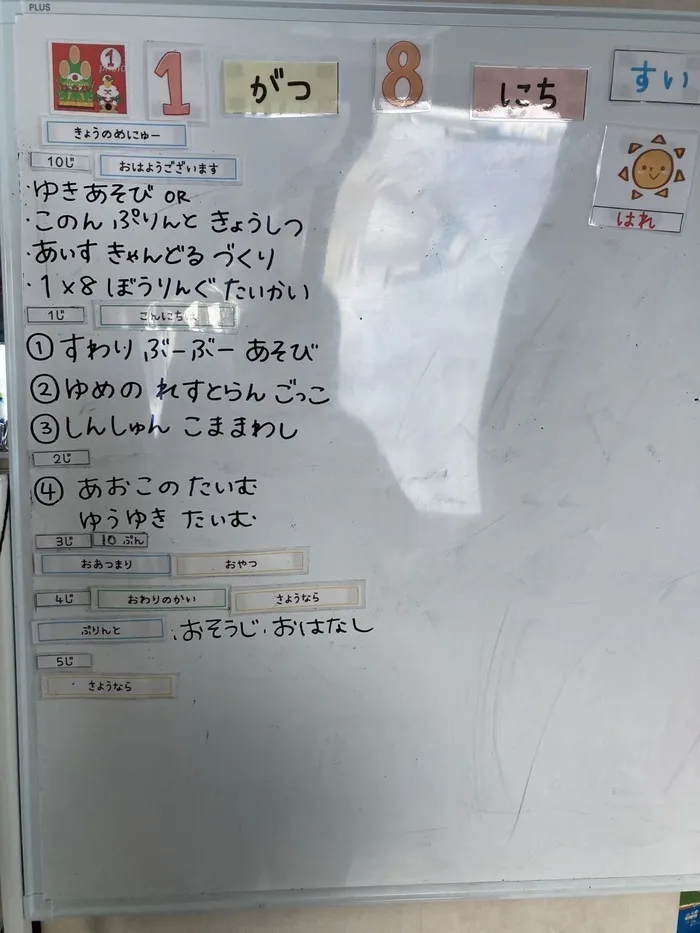 PLUS
1 1 がつ 8 にち すい
きょうのめにゅー
はれ
10じ おはようございます
・ゆきあそび OR
・このん ぷりんと きょうしつ
・あいす きゃんどる づくり
・1×8 ぼうりんぐ たいかい
1じ こんにちは
① すわり ぶーぶー あそび
② ゆめの れすとらん ごっこ
③ しんしゅん こままわし
2じ
④ あおこの たいむ
ゆうゆき たいむ
3じ 10 ぷん
おあつまり おやつ
4じ おわりのかい さようなら
ぷりんと ・おそうじ・おはなし
5じ
さようなら